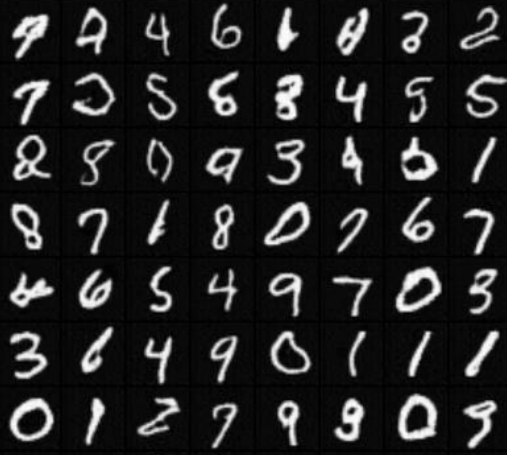 4 6 2
7 5 6 3 4 5 5
8 8 0 9 3 4 6 1
8 7 1 8 0 7 6 7
6 5 4 9 7 0 3
3 6 4 9 0 1 1 1
0 1 2 7 9 9 0 9